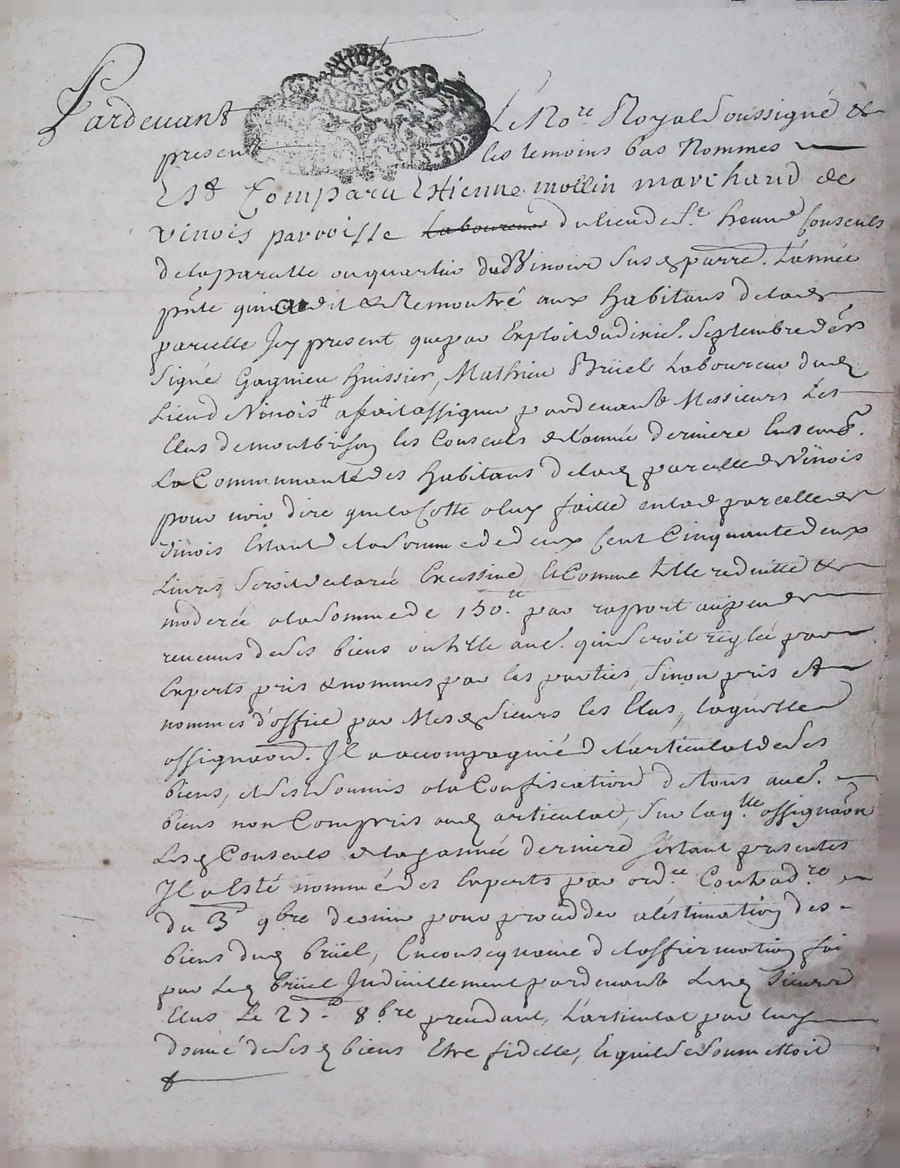 Pardevant Le No.re Royal Soussigné &
present les temoins bas Nommes
Est Comparu Etienne mollin marchand de
vinois parroisse du lieu de St. heand Consuls
de la parcelle ou quartier du Vinois l'année
pnte qui a dit & Remontré aux habitans de lad
parcelle Icy present, que par Exploit du Septembre der
Signé Gagnieu huissier, Mathieu Brüel Laboureur dud
Lieu de Vinois a fait assigner pardevant Messieurs Les
Elus de montbrison les Consuls de l'année derniere
La Communauté des habitans de lad parcelle de Vinois
pour voir dire que la Cotte a luy faitte en lad parcelle de
Vinois Estant de la Somme de deux Cent Cinquante deux
Livres Seroit declarée Excessive, & Comme telle reduitte &
moderée a la Somme de 150.tt par rapport au peu de
revenus de ses biens ou telle autre qui Seroit reglée par
Experts pris & nommes par les parties, Sinon pris et
nommes d'office par Mesd Sieurs les Elus, laquelle
assignaon. Il a accompagnié de l'articulat de Ses
biens, et Ses Soumis a la Confiscation de tous autres
biens non Compris aud articulat, Sur laq.lle assignaon
Lesd Consuls de lad année derniere S'estant presentes
Il a Esté nommé des Experts par ord.ce Contrad.re
du 3e 9bre dernier pour proceder a l'estimation des
biens dud Brüel, En consequance de l'affirmation
par Led Brüel Judiciellement pardevant Lesd Sieurs
Elus Le 27e 8bre precedant, L'articulat par luy
donné de Sesd biens Etre fidelle, & qu'il Se Soumettoit
&